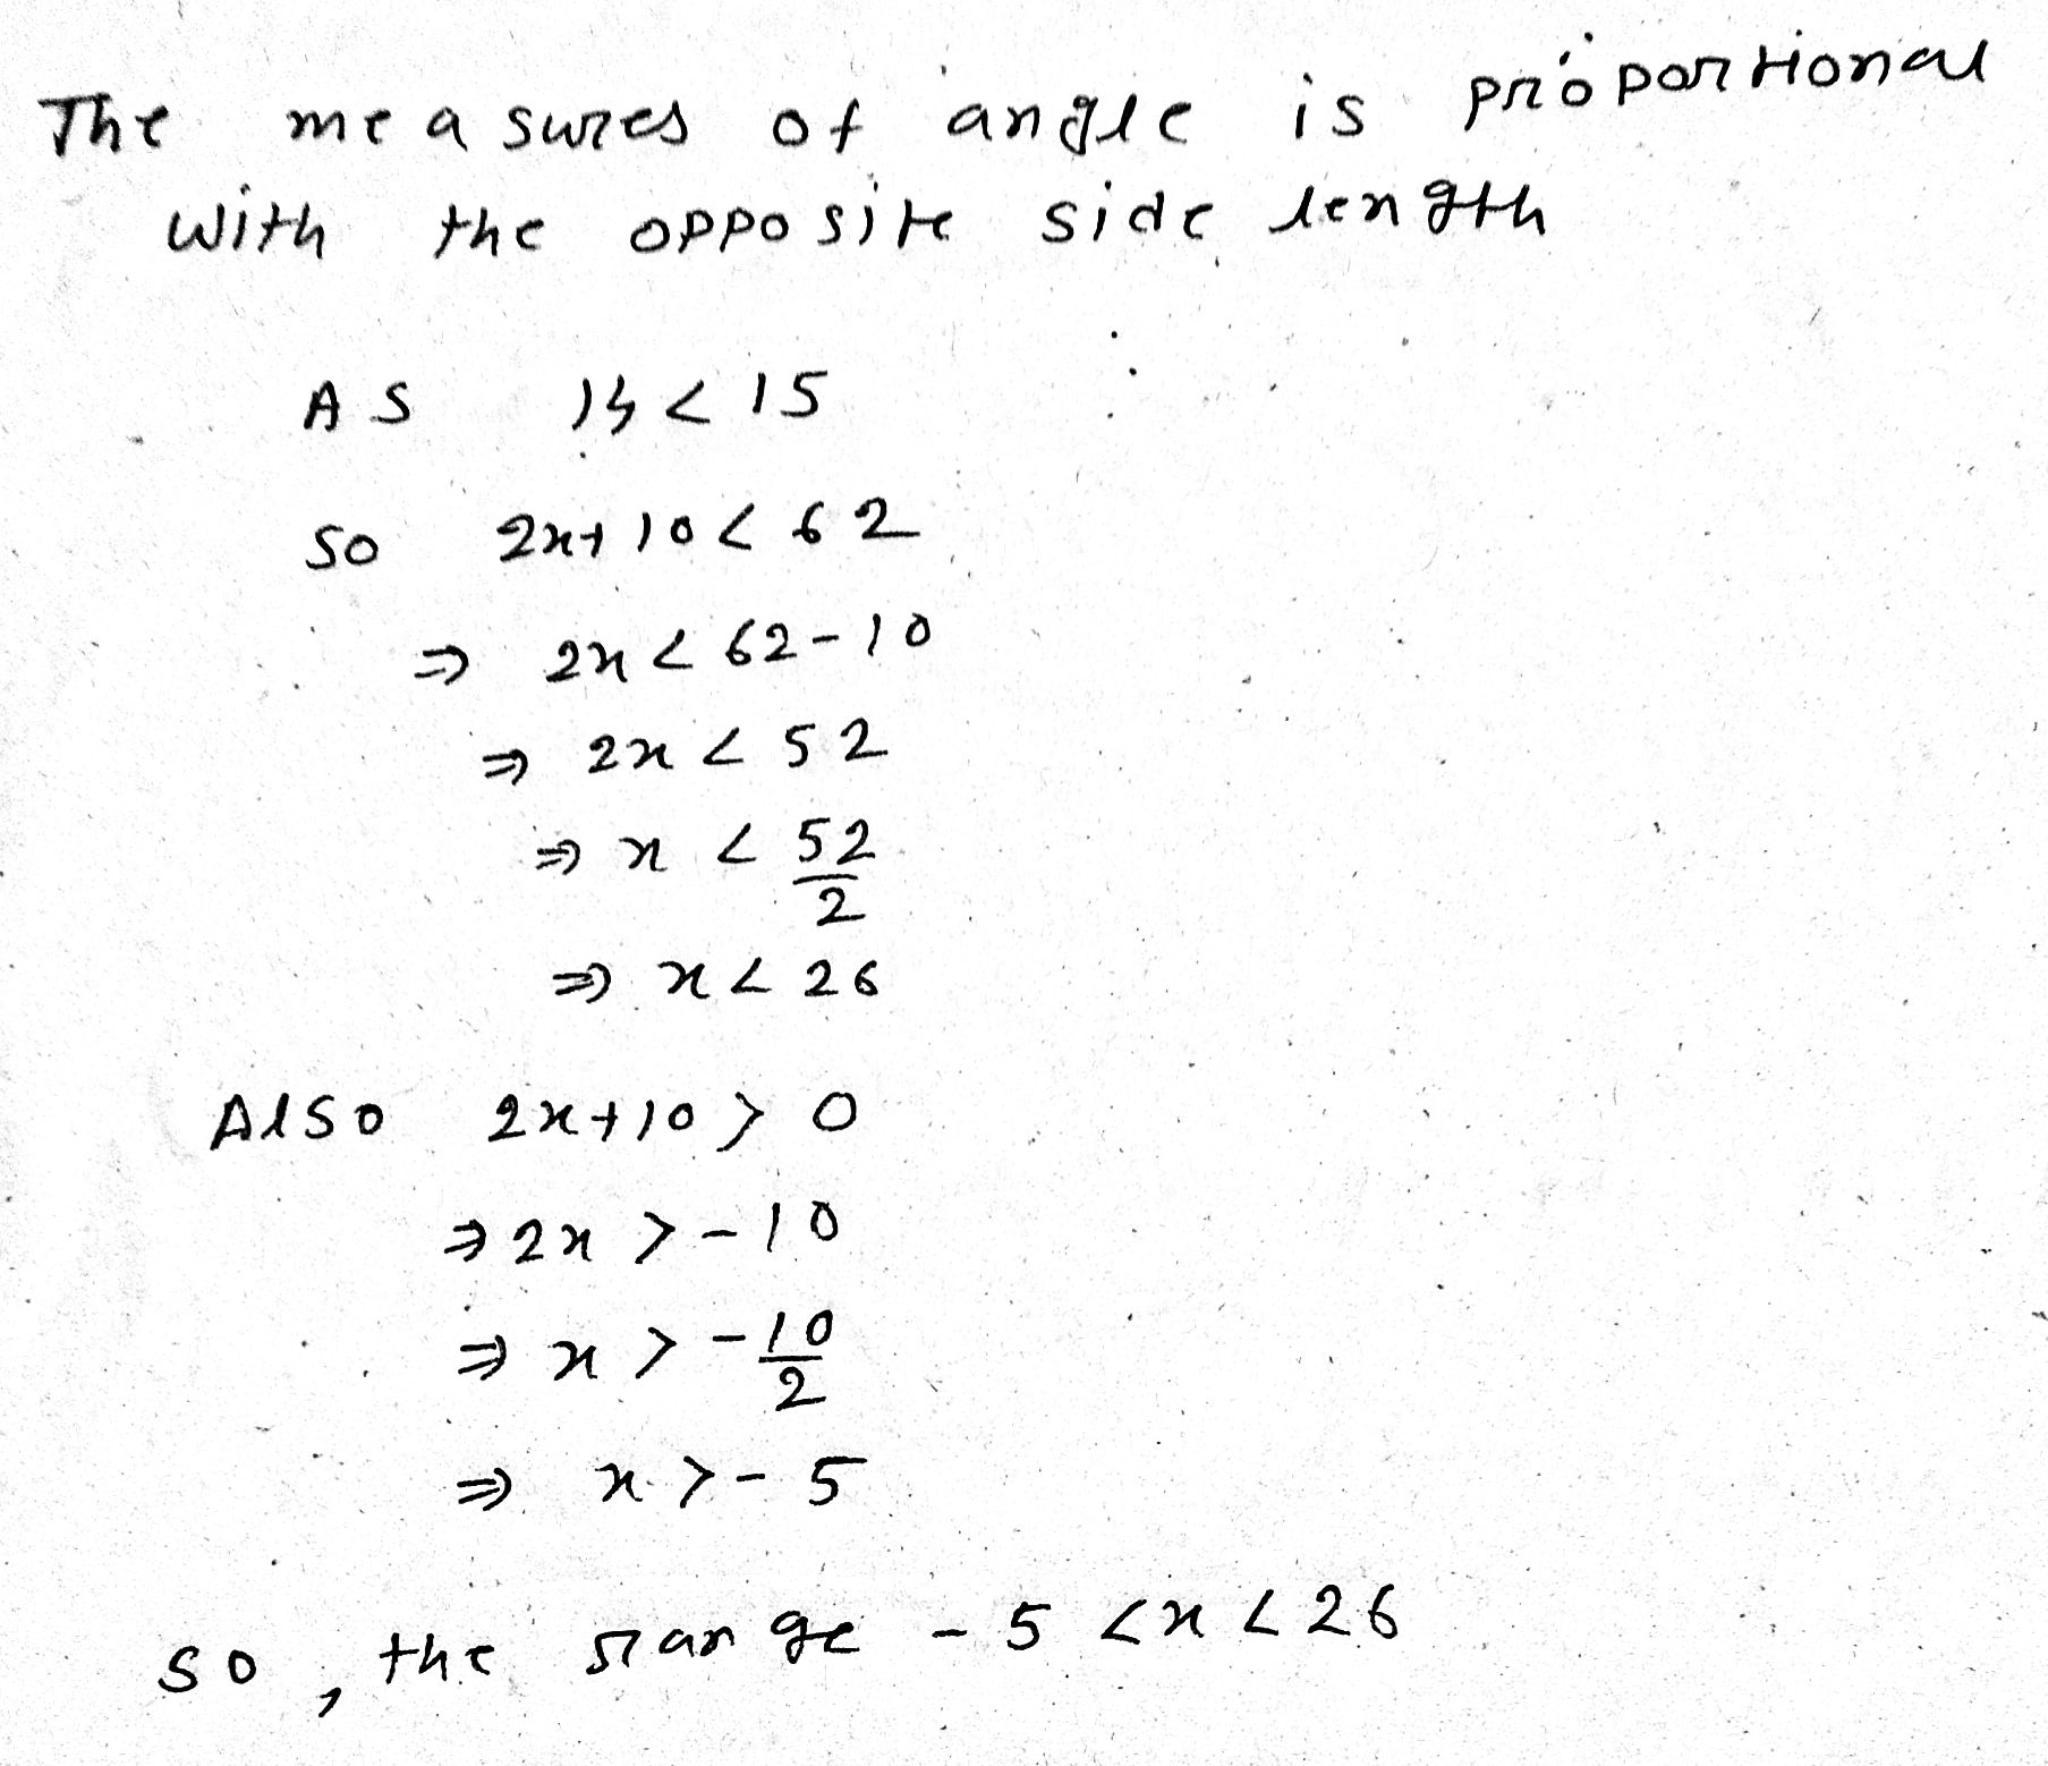 The measures of angle is proportional
with the opposite side length
AS 14 < 15
So 2x+10 < 62
⇒ 2x < 62-10
⇒ 2x < 52
⇒ x < 52/2
⇒ x < 26
Also 2x+10 > 0
⇒ 2x > -10
⇒ x > -10/2
⇒ x > -5
So, the range -5 < x < 26